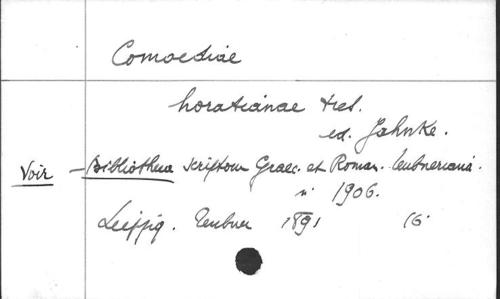 Comoediae
horatianae tres.
ed. Jahnke.
Voir - Bibliotheca scriptorum Graec. et Roman. teubneriana.
n° 1906.
Leipzig. Teubner 1891 16°